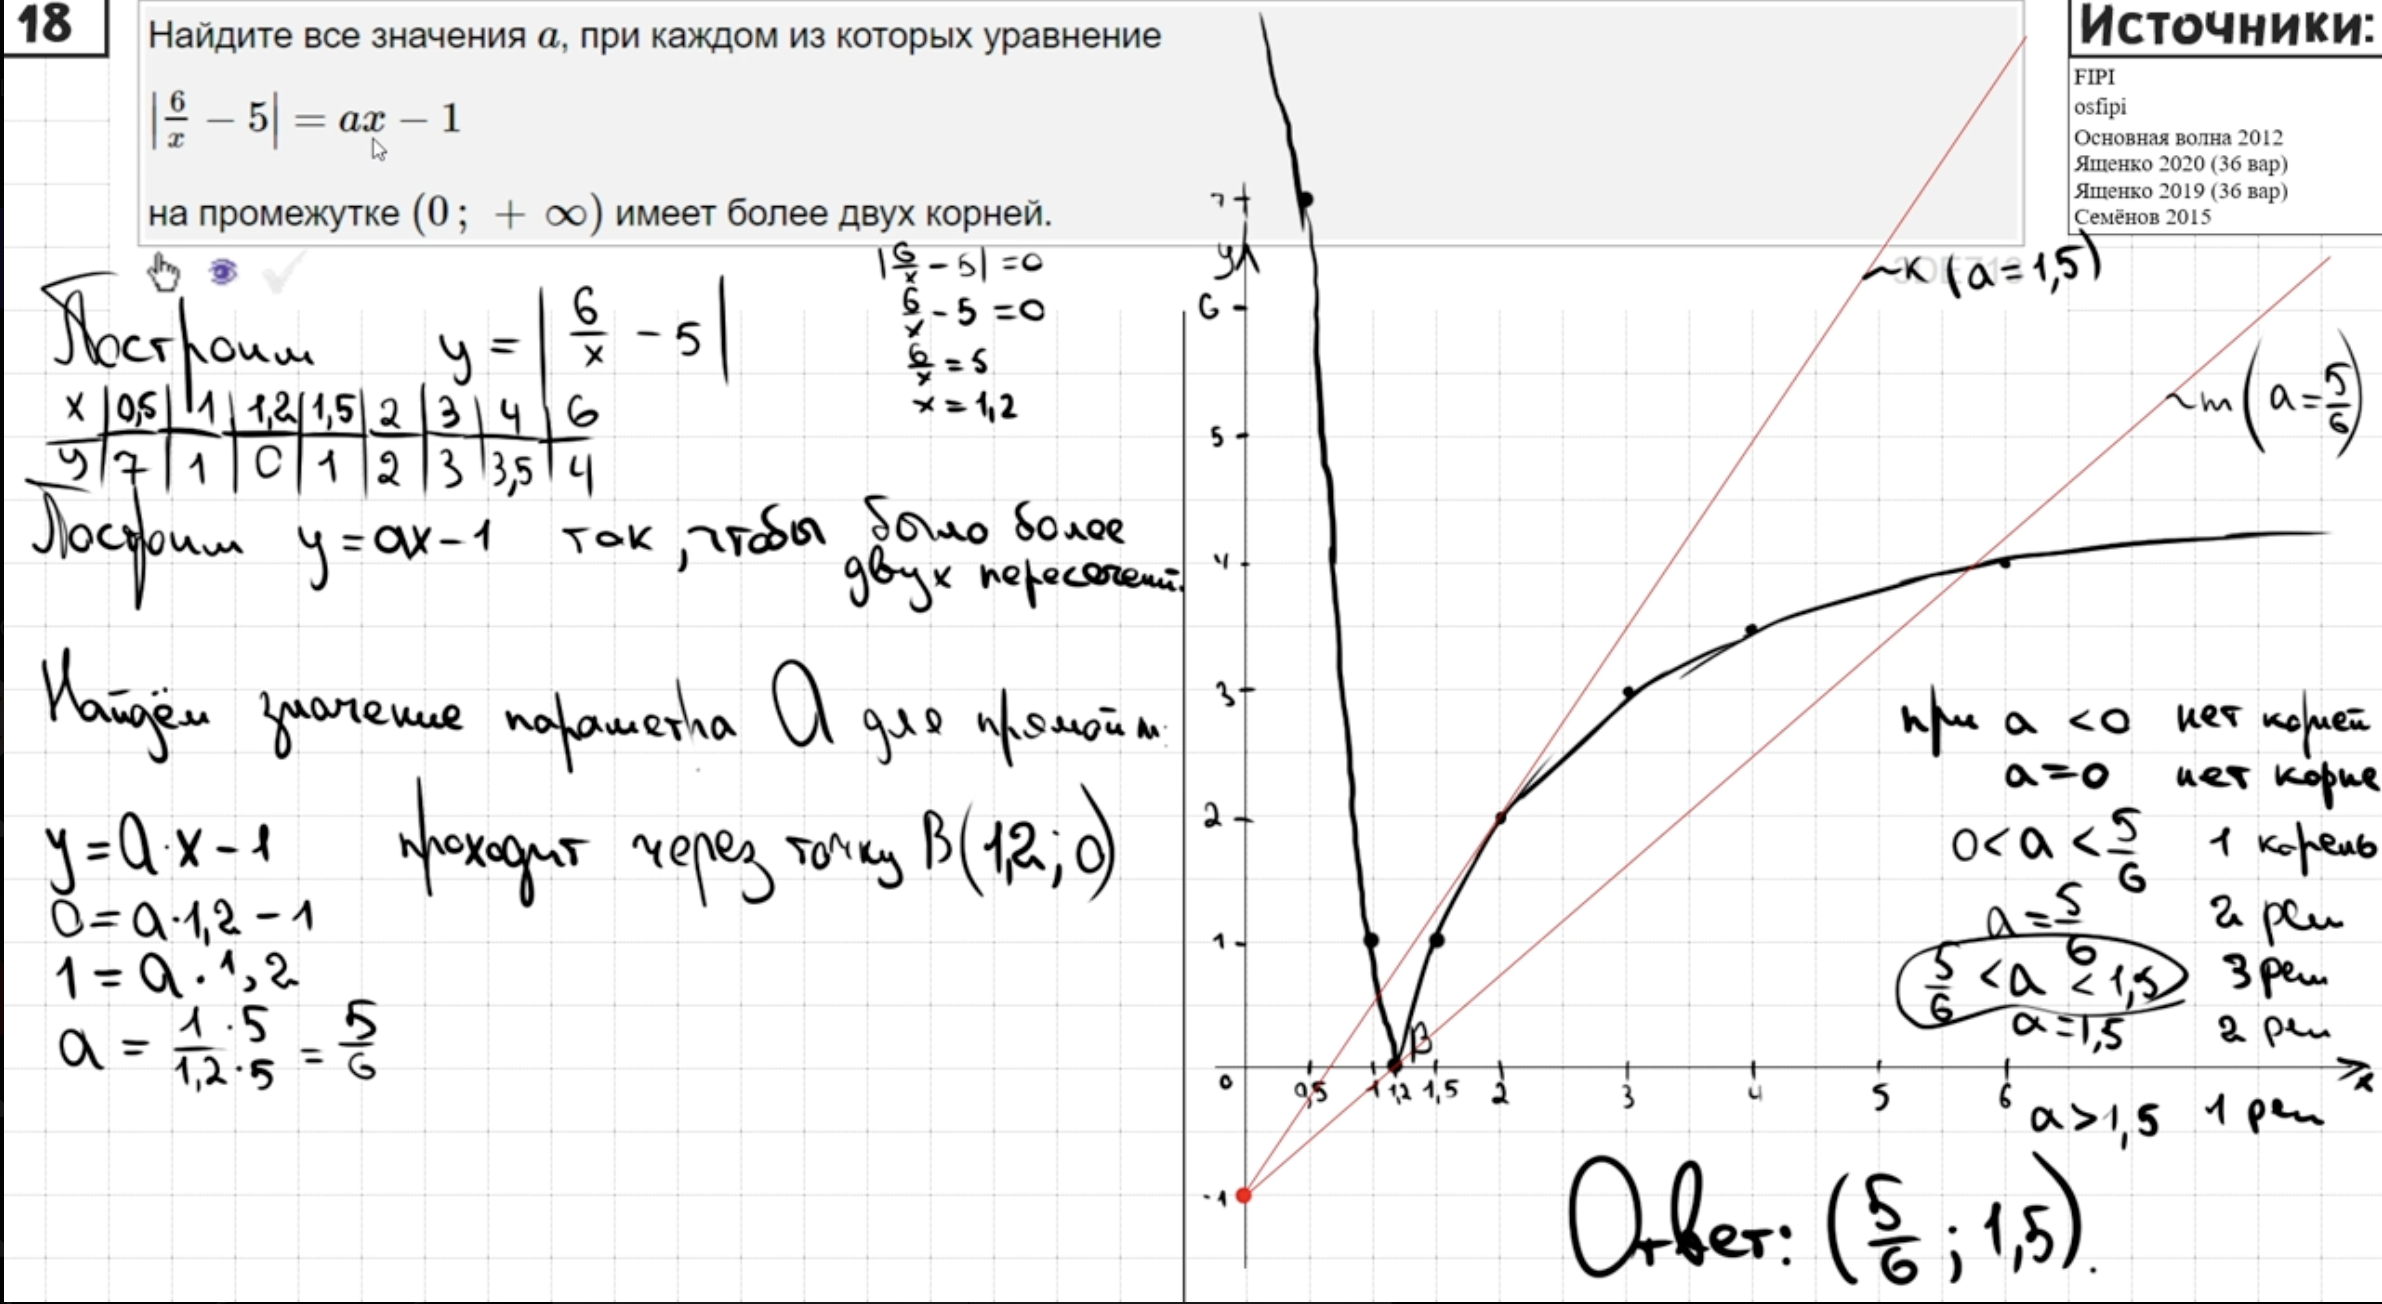 18
Найдите все значения a, при каждом из которых уравнение
|6/x − 5| = ax − 1
на промежутке (0; + ∞) имеет более двух корней.
Источники:
FIPI
osfipi
Основная волна 2012
Ященко 2020 (36 вар)
Ященко 2019 (36 вар)
Семёнов 2015
Построим y = |6/x − 5|
x | 0,5 | 1 | 1,2 | 1,5 | 2 | 3 | 4 | 6
y | 7 | 1 | 0 | 1 | 2 | 3 | 3,5 | 4
|6/x − 5| = 0
6/x − 5 = 0
6/x = 5
x = 1,2
Построим y = ax − 1 так, чтобы было более
двух пересечений.
Найдём значение параметра a для прямой m:
y = a·x − 1 проходит через точку B(1,2; 0)
0 = a·1,2 − 1
1 = a·1,2
a = 1·5/1,2·5 = 5/6
7
y
6
5
4
3
2
1
0
-1
0,5 1 1,2 1,5 2 3 4 5 6 x
B
k (a = 1,5)
m (a = 5/6)
при a < 0 нет корней
a = 0 нет корне
0 < a < 5/6 1 корень
a = 5/6 2 реш
5/6 < a < 1,5 3 реш
a = 1,5 2 реш
a > 1,5 1 реш
Ответ: (5/6; 1,5).